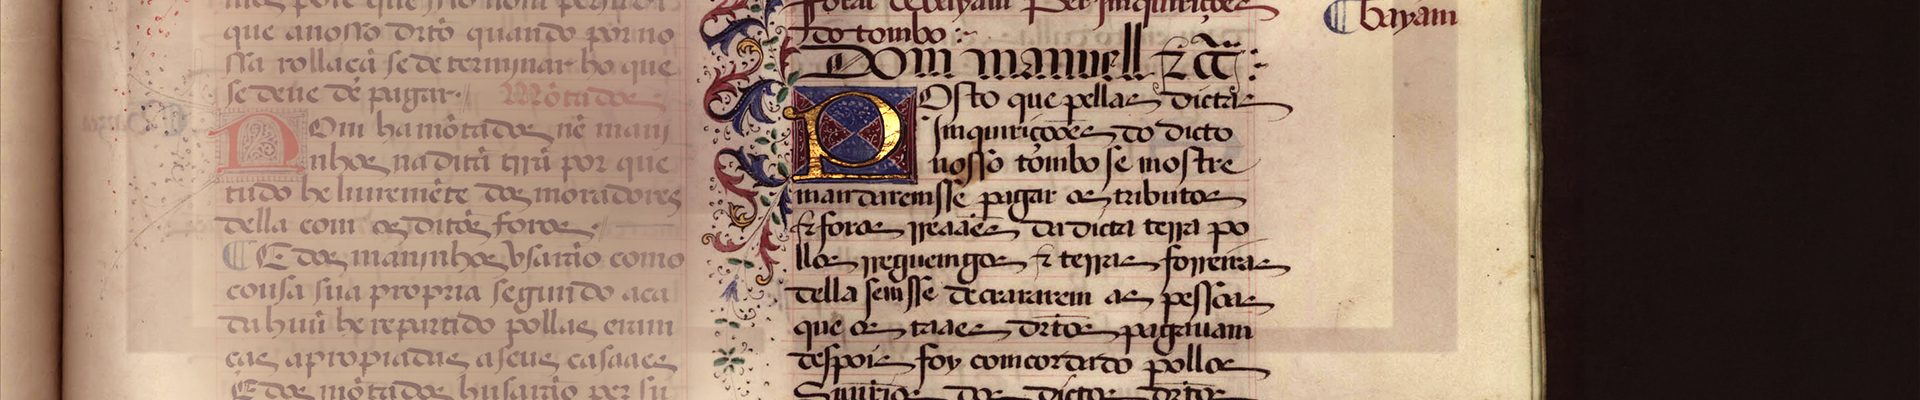 que anosso drto quando por no
ssa rollaçã se determinar ho que
se deue de pagar. Mõtados
Om ha mõtados nẽ mani
nhos na dita trrã por que
tudo he liuremẽte dos moradores
della com os ditos foros.
E dos maninhos vsarão como
cousa sua propria segundo aca
da huũ he repartido pollas eram
ças apropiadas a seus casaaes
E dos mõtados husarão per su
Foral de bayam Per Imquiriçoões
do tombo.
bayam
Dom manuell &c.ª
POsto que pellas dictas
Imquiriçoões do dicto
nosso tombo se mostre
mandaremsse pagar os tributos
& foros rreaães da dicta terra po
llos rregueingos & terras forreiras
della sem sse decrararem as pessoas
que os taaes drtos pagauam
despois foy comcordado pollos
dos dictos drtos